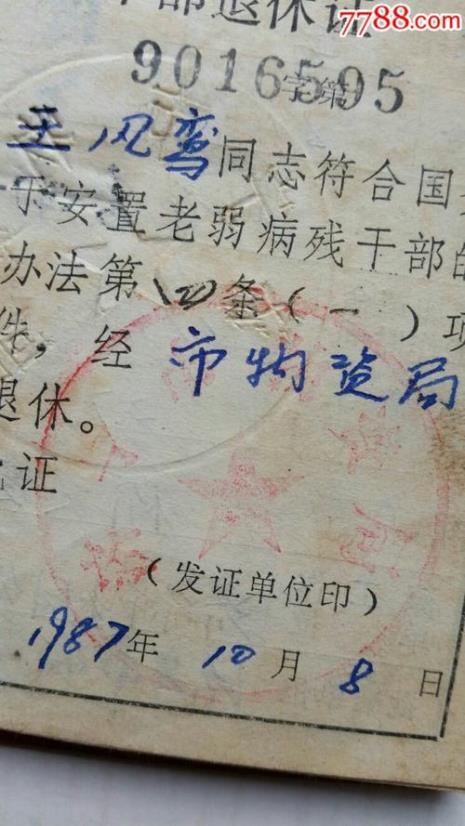 7788.com
部退休证
9016595
字第
王凤鸾同志符合国
于安置老弱病残干部的
办法第四条(一)项
件，经市物资局
退休。
证
(发证单位印)
1987年10月8日